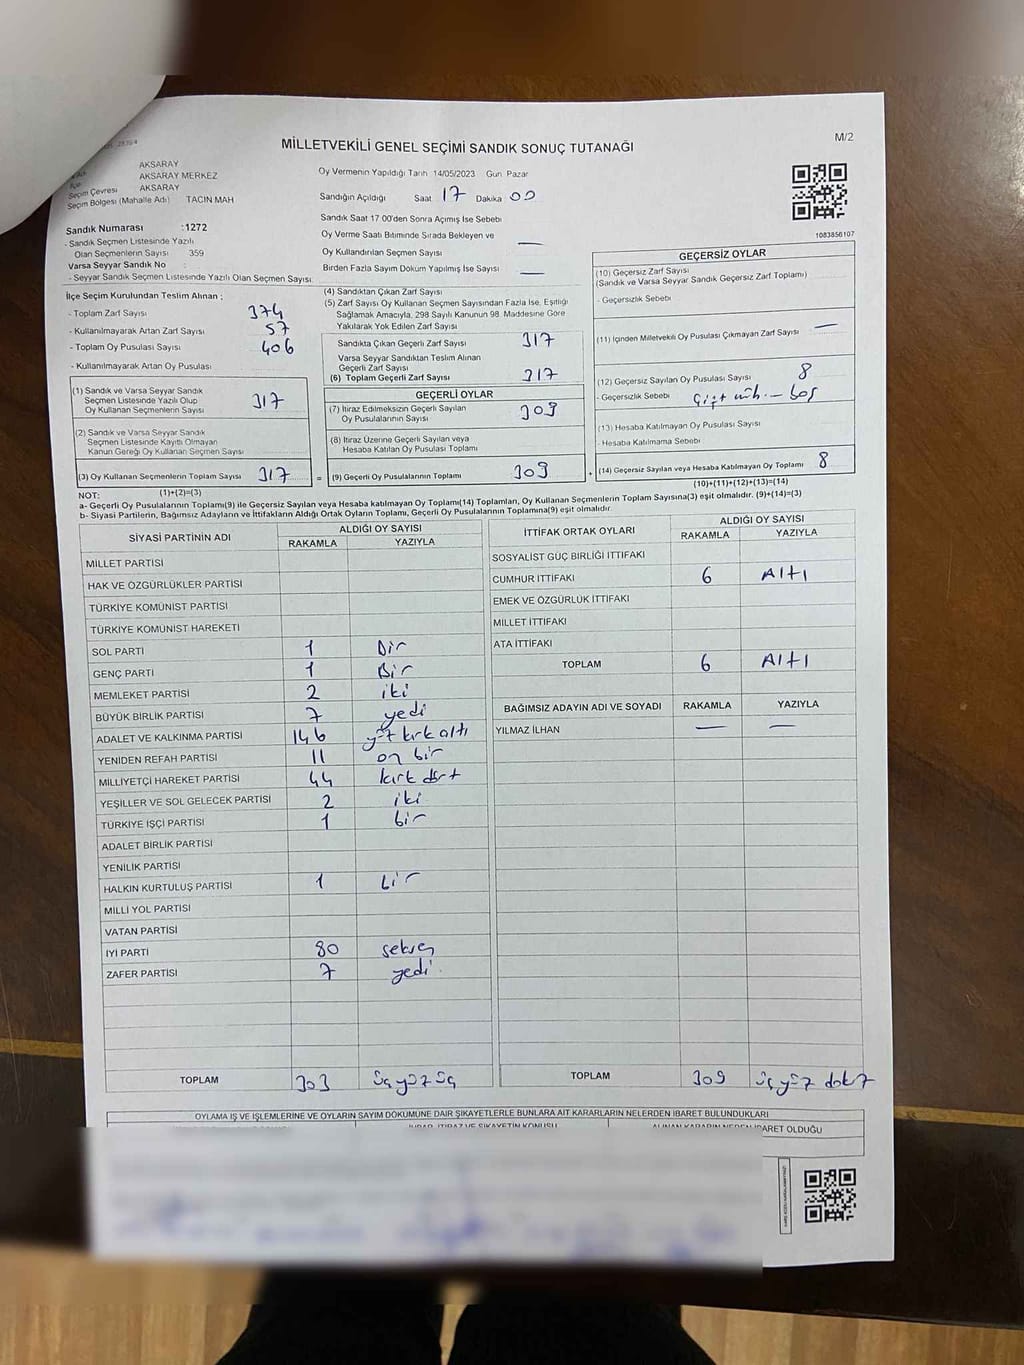 MİLLETVEKİLİ GENEL SEÇİMİ SANDIK SONUÇ TUTANAĞI
M/2
AKSARAY
AKSARAY MERKEZ
Seçim Çevresi AKSARAY
Seçim Bölgesi (Mahalle Adı) TACIN MAH
Sandık Numarası :1272
- Sandık Seçmen Listesinde Yazılı
Olan Seçmenlerin Sayısı 359
Varsa Seyyar Sandık No :
- Seyyar Sandık Seçmen Listesinde Yazılı Olan Seçmen Sayısı:
Oy Vermenin Yapıldığı Tarih 14/05/2023 Gün Pazar
Sandığın Açıldığı Saat 17 Dakika 00
Sandık Saat 17 00'den Sonra Açımış İse Sebebi
Oy Verme Saati Bitiminde Sırada Bekleyen ve
Oy Kullandırılan Seçmen Sayısı —
Birden Fazla Sayım Döküm Yapılmış İse Sayısı —
1083856107
İlçe Seçim Kurulundan Teslim Alınan :
- Toplam Zarf Sayısı 374
- Kullanılmayarak Artan Zarf Sayısı 57
- Toplam Oy Pusulası Sayısı 406
- Kullanılmayarak Artan Oy Pusulası
(1) Sandık ve Varsa Seyyar Sandık
Seçmen Listesinde Yazılı Olup
Oy Kullanan Seçmenlerin Sayısı 317
(2) Sandık ve Varsa Seyyar Sandık
Seçmen Listesinde Kayıtlı Olmayan
Kanun Gereği Oy Kullanan Seçmen Sayısı
(3) Oy Kullanan Seçmenlerin Toplam Sayısı 317
(1)+(2)=(3)
(4) Sandıktan Çıkan Zarf Sayısı
(5) Zarf Sayısı Oy Kullanan Seçmen Sayısından Fazla İse, Eşitliği
Sağlamak Amacıyla, 298 Sayılı Kanunun 98. Maddesine Göre
Yakılarak Yok Edilen Zarf Sayısı
Sandıkta Çıkan Geçerli Zarf Sayısı 317
Varsa Seyyar Sandıktan Teslim Alınan
Geçerli Zarf Sayısı
(6) Toplam Geçerli Zarf Sayısı 317
GEÇERLİ OYLAR
(7) İtiraz Edilmeksizin Geçerli Sayılan
Oy Pusulalarının Sayısı 309
(8) İtiraz Üzerine Geçerli Sayılan veya
Hesaba Katılan Oy Pusulası Toplamı
= (9) Geçerli Oy Pusulalarının Toplamı 309 +
GEÇERSİZ OYLAR
(10) Geçersiz Zarf Sayısı
(Sandık ve Varsa Seyyar Sandık Geçersiz Zarf Toplamı)
- Geçersizlik Sebebi
(11) İçinden Milletvekili Oy Pusulası Çıkmayan Zarf Sayısı —
(12) Geçersiz Sayılan Oy Pusulası Sayısı 8
- Geçersizlik Sebebi Çift müh. - boş
(13) Hesaba Katılmayan Oy Pusulası Sayısı
- Hesaba Katılmama Sebebi
(14) Geçersiz Sayılan veya Hesaba Katılmayan Oy Toplamı 8
(10)+(11)+(12)+(13)=(14)
NOT:
a- Geçerli Oy Pusulalarının Toplamı(9) ile Geçersiz Sayılan veya Hesaba katılmayan Oy Toplamı(14) Toplamları, Oy Kullanan Seçmenlerin Toplam Sayısına(3) eşit olmalıdır. (9)+(14)=(3)
b- Siyasi Partilerin, Bağımsız Adayların ve İttifakların Aldığı Ortak Oyların Toplamı, Geçerli Oy Pusulalarının Toplamına(9) eşit olmalıdır.
SİYASİ PARTİNİN ADI ALDIĞI OY SAYISI
RAKAMLA YAZIYLA
MİLLET PARTİSİ
HAK VE ÖZGÜRLÜKLER PARTİSİ
TÜRKİYE KOMÜNİST PARTİSİ
TÜRKİYE KOMÜNİST HAREKETİ
SOL PARTİ 1 Bir
GENÇ PARTİ 1 Bir
MEMLEKET PARTİSİ 2 iki
BÜYÜK BİRLİK PARTİSİ 7 yedi
ADALET VE KALKINMA PARTİSİ 146 yüz kırk altı
YENİDEN REFAH PARTİSİ 11 on bir
MİLLİYETÇİ HAREKET PARTİSİ 44 kırk dört
YEŞİLLER VE SOL GELECEK PARTİSİ 2 iki
TÜRKİYE İŞÇİ PARTİSİ 1 bir
ADALET BİRLİK PARTİSİ
YENİLİK PARTİSİ
HALKIN KURTULUŞ PARTİSİ 1 bir
MİLLİ YOL PARTİSİ
VATAN PARTİSİ
İYİ PARTİ 80 seksen
ZAFER PARTİSİ 7 yedi
TOPLAM 303 üç yüz üç
İTTİFAK ORTAK OYLARI ALDIĞI OY SAYISI
RAKAMLA YAZIYLA
SOSYALİST GÜÇ BİRLİĞİ İTTİFAKI
CUMHUR İTTİFAKI 6 Altı
EMEK VE ÖZGÜRLÜK İTTİFAKI
MİLLET İTTİFAKI
ATA İTTİFAKI
TOPLAM 6 Altı
BAĞIMSIZ ADAYIN ADI VE SOYADI RAKAMLA YAZIYLA
YILMAZ İLHAN — —
TOPLAM 309 üç yüz dokuz
OYLAMA İŞ VE İŞLEMLERİNE VE OYLARIN SAYIM DÖKÜMÜNE DAİR ŞİKAYETLERLE BUNLARA AİT KARARLARIN NELERDEN İBARET BULUNDUKLARI